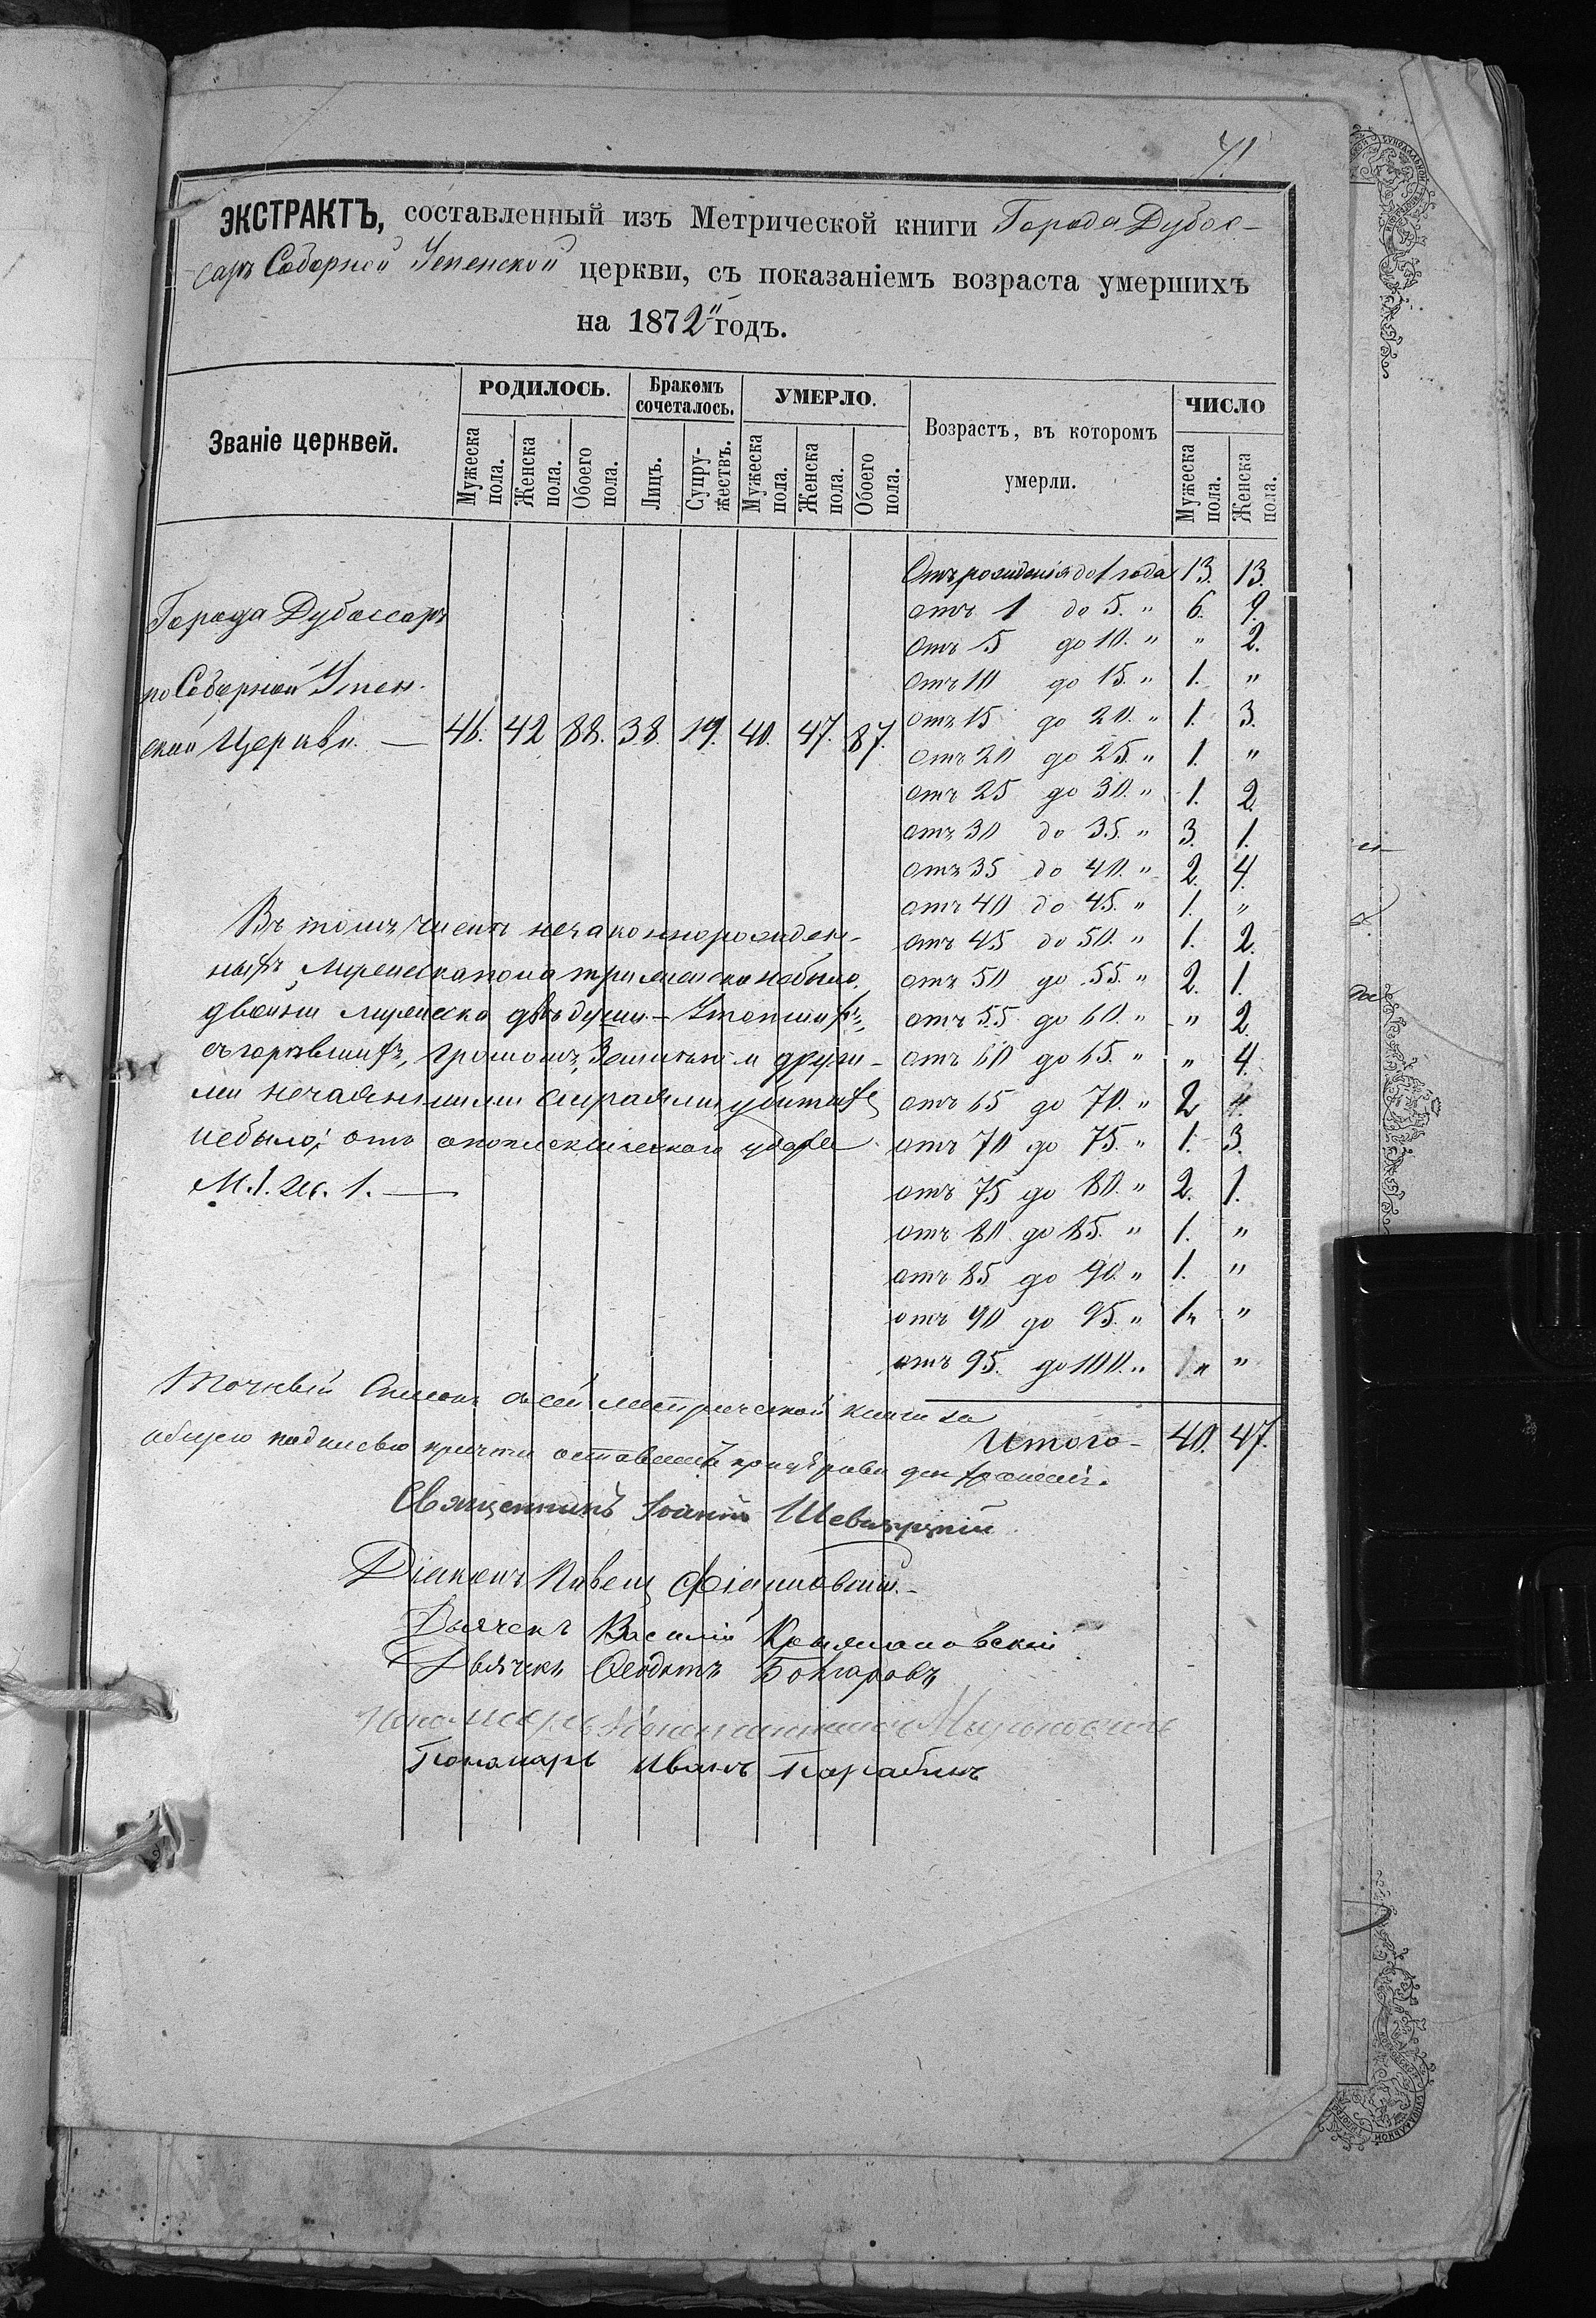 71.
ЭКСТРАКТЪ, составленный изъ Метрической книги Города Дубос-
саръ Соборной Успенской церкви, съ показаніемъ возраста умершихъ
на 1872 годъ.
Званіе церквей.
РОДИЛОСЬ.
Мужеска пола.
Женска пола.
Обоего пола.
Бракомъ сочеталось.
Лицъ.
Супружествъ.
УМЕРЛО.
Мужеска пола.
Женска пола.
Обоего пола.
Возрастъ, въ которомъ
умерли.
ЧИСЛО
Мужеска пола.
Женска пола.
Города Дубоссаръ
по Соборной Успен-
ской Церкви. — 46. 42 88. 38. 19. 40. 47. 87.
Отъ рожденія до 1 года 13. 13.
отъ 1 до 5. " 6. 9.
отъ 5 до 10. " " 2.
отъ 10 до 15. " 1. "
отъ 15 до 20. " 1. 3.
отъ 20 до 25. " 1. "
отъ 25 до 30. " 1. 2.
отъ 30 до 35. " 3. 1.
отъ 35 до 40. " 2. 4.
отъ 40 до 45. " 1. "
отъ 45 до 50. " 1. 2.
отъ 50 до 55. " 2. 1.
отъ 55 до 60. " " 2.
отъ 60 до 65. " " 4.
отъ 65 до 70. " 2 4.
отъ 70 до 75. " 1. 3.
отъ 75 до 80. " 2. 1.
отъ 80 до 85. " 1. "
отъ 85 до 90. " 1. "
отъ 90 до 95. " 1 " "
отъ 95. до 100. " 1 " "
Итого - 40. 47.
Въ томъ числѣ незаконнорожден-
ныхъ Мужеска пола три женска небыло.
двойни мужеска двѣ души - Утопшихъ,
съгорѣвшихъ, громомъ, Землею и други-
ми нечаянными случаями убитыхъ
небыло; отъ апоплексическаго удара
М. 1. Ж. 1. —
Точный Списокъ сей метрической книги за
общею подписью причта оставленъ при церкви для храненія.
Священникъ Іоаннъ
Діаконъ Павелъ
Дьячекъ Василій
Дьячекъ Ѳеодотъ Болгаровъ
Пономарь Константинъ
Пономарь Иванъ